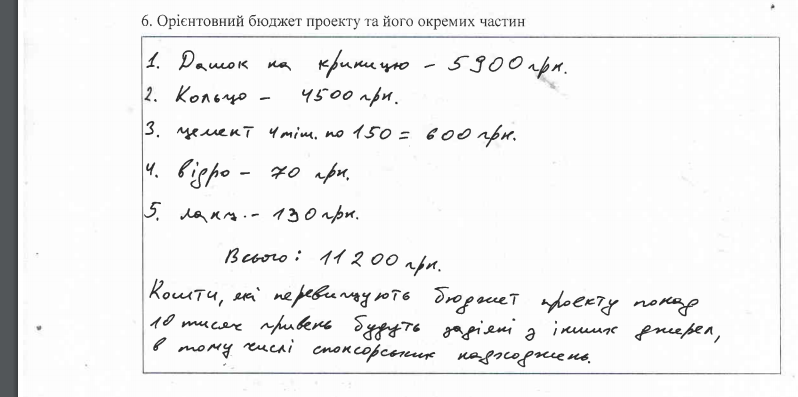 6. Орієнтовний бюджет проекту та його окремих частин
1. Дашок на криницю – 5900 грн.
2. Кольцо – 4500 грн.
3. цемент 4 міш. по 150 = 600 грн.
4. відро – 70 грн.
5. ланц. – 130 грн.
Всього: 11200 грн.
Кошти, які перевищують бюджет проекту понад
10 тисяч гривень будуть задіяні з інших джерел,
в тому числі спонсорських надходжень.